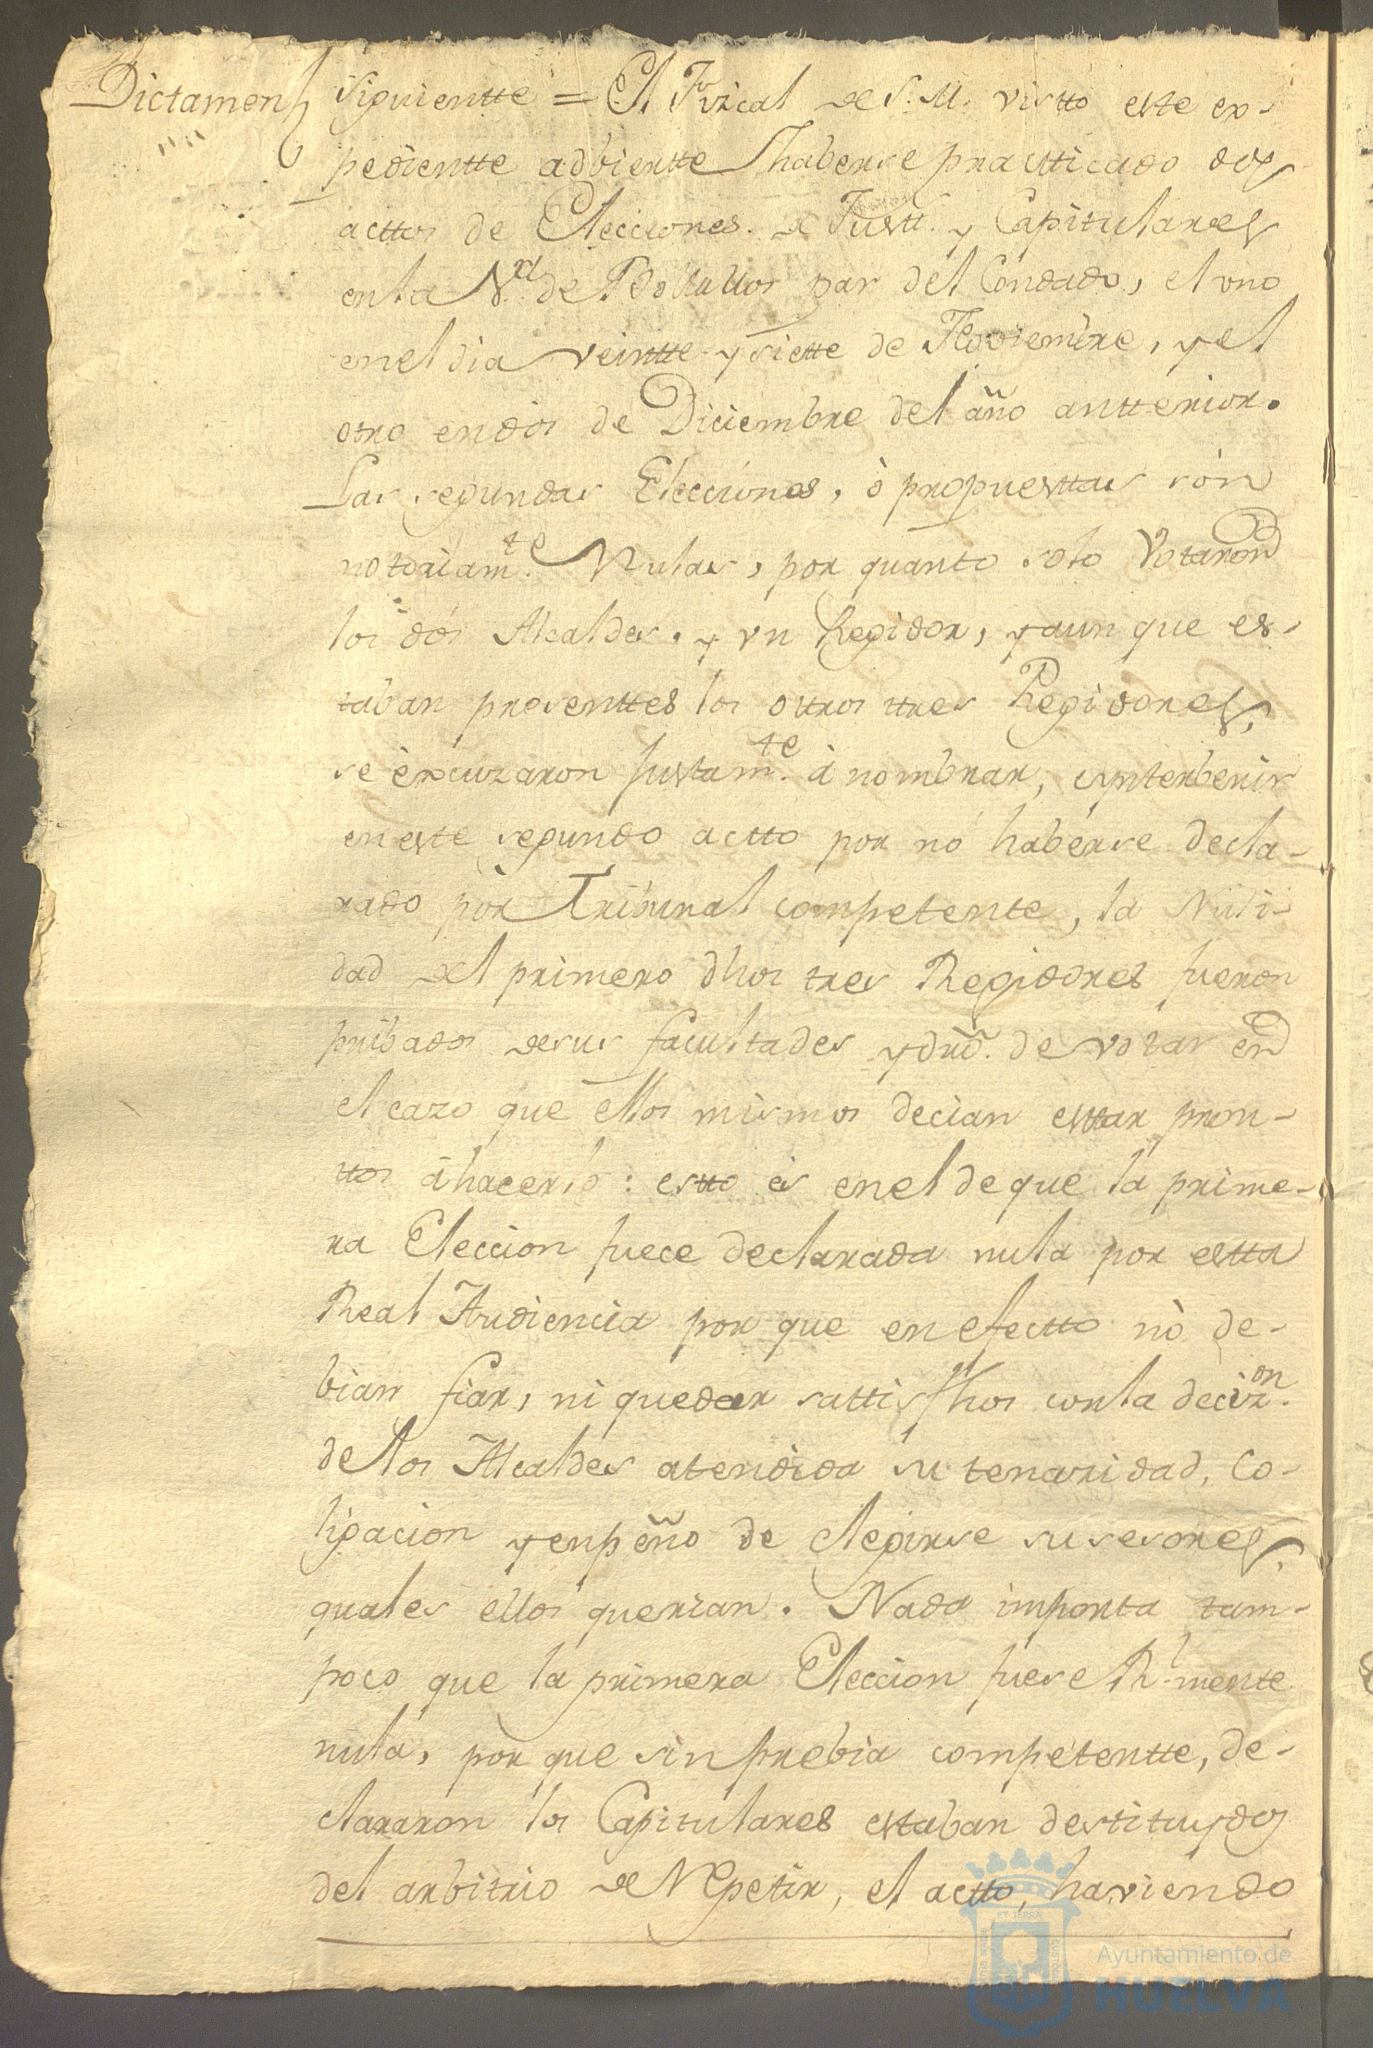 Dictamen siguientte = El Fizcal de S. M. vistto este ex-
pedientte adbiertte haberse practticado dos
acttos de Elecciones de Justt. y Capitulares
en la V.ª de Bollullos par del Condado, el uno
en el dia veintte y siette de Noviembre, y el
otro en dos de Diciembre del año antterior.
Las segundas Elecciones, ò propuesttas són
notoriam.te Nulas, por quanto solo Votaron
los dós Alcaldes, y vn Regidor, y aun que es-
taban presenttes los ottros ttres Regidores,
se èxcuzaron justam.te à nombrar, è ynterbenir
en este segundo actto por nó habérse decla-
rado pòr Tribunal competente, la Nuli-
dad del primero dhos tres Regidores fueron
pribados de sus facultades y dro. de votar en
el cazo que ellos mismos decian esttar pron-
ttos à hacerlo: estto és en el de que la prime-
ra Eleccion fuece declarada nula por estta
Real Audiencia por que en efectto nò de-
bian fiar, ni quedar sattisfhos con la deciz.on
de los Alcaldes atendida su tenazidad, Co-
ligacion y enpeño de elegirse susesores,
quales ellos querian. Nada importa tam-
poco que la primera Eleccion fuese R.lmente
nula, por que sin prebia competentte, de-
clararon los Capitulares estaban destituydos
del arbitrio de Repetir, el actto, haviendo
Ayuntamiento de
HUELVA